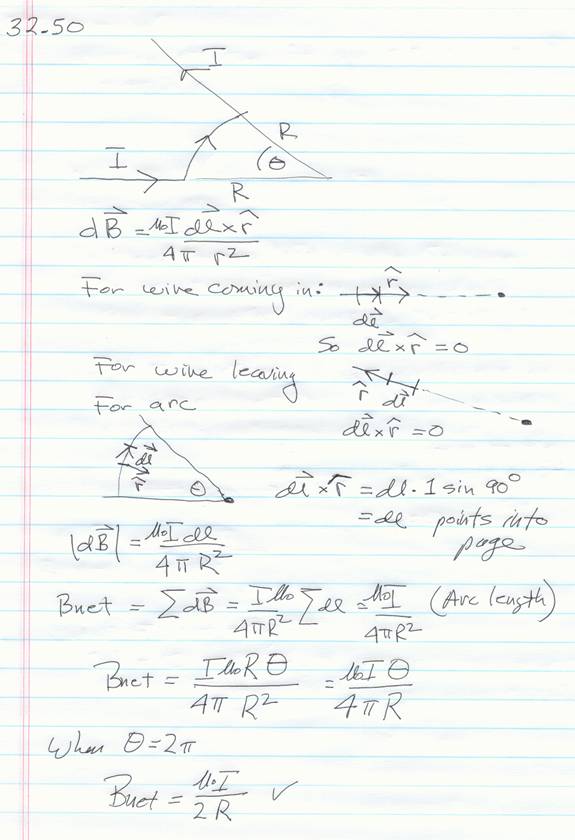 32-50
I
R
θ
I
R
dB⃗ = μ₀I/4π dl⃗ × r̂/r²
For wire coming in: r̂
dl⃗
So dl⃗ × r̂ = 0
For wire leaving
r̂ dl⃗
For arc
dl⃗ × r̂ = 0
dl⃗
r̂ θ
dl⃗ × r̂ = dl · 1 sin 90°
= dl points into
page
|dB⃗| = μ₀I dl / 4πR²
Bnet = ∑ dB⃗ = Iμ₀/4πR² ∑ dl = μ₀I/4πR² (Arc length)
Bnet = Iμ₀Rθ/4πR² = μ₀Iθ/4πR
When θ = 2π
Bnet = μ₀I/2R ✓